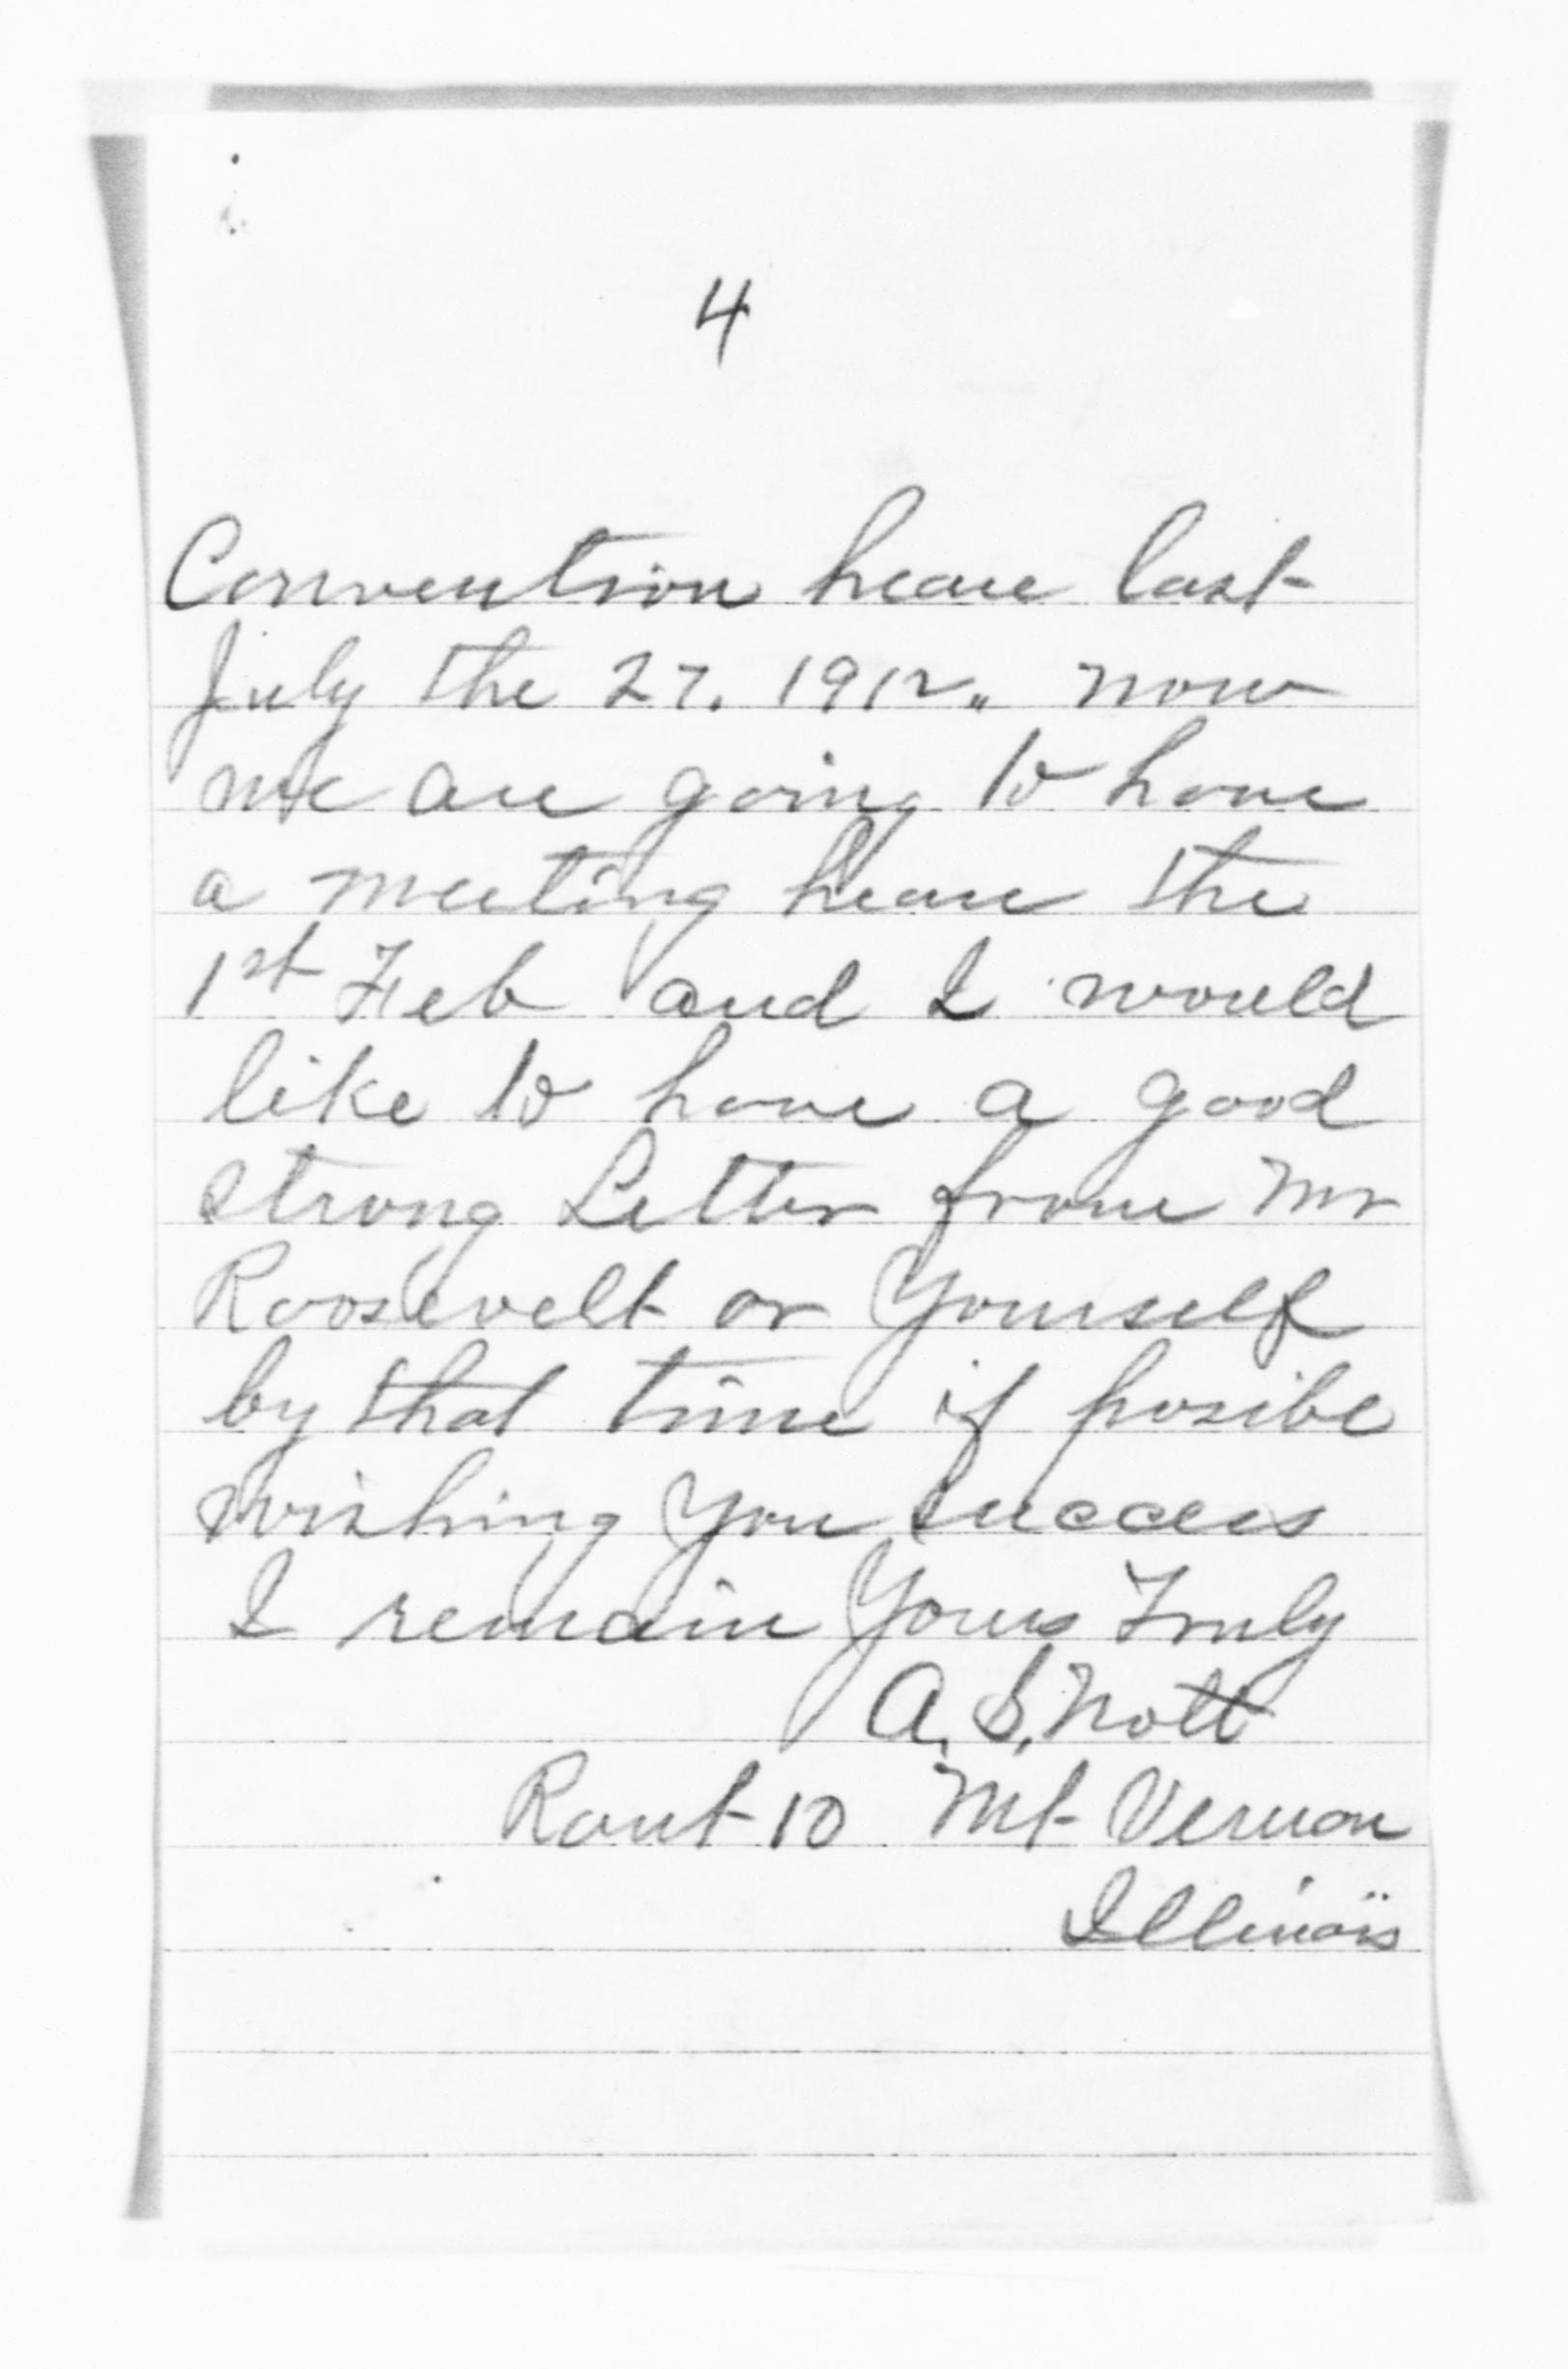 4
Convention heare last
July the 27. 1912. now
we are going to have
a meeting heare the
1st Feb and I would
like to have a good
strong Letter from Mr
Roosevelt or Yourself
by that time if posibe
wishing You success
I remain Yours Truly
A. S. Nott
Rout 10 Mt Vernon
Illinois